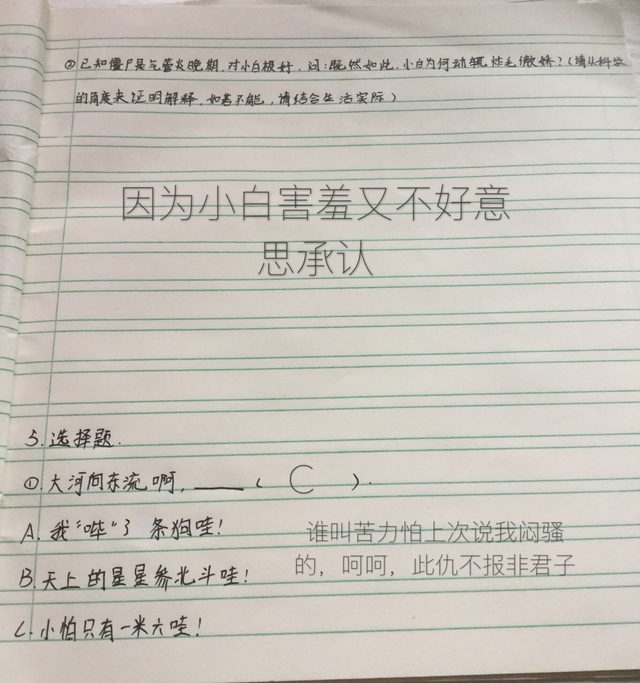 ②已知僵尸是气管炎晚期,对小白极好,问:既然如此,小白为何动辄炸毛傲娇?(请从科学
的角度来证明解释,如若不能,请结合生活实际)
因为小白害羞又不好意
思承认
5.选择题.
①大河向东流啊,____( C ).
A.我“哔”了条狗哇!
谁叫苦力怕上次说我闷骚
的,呵呵,此仇不报非君子
B.天上的星星参北斗哇!
C.小怕只有一米六哇!